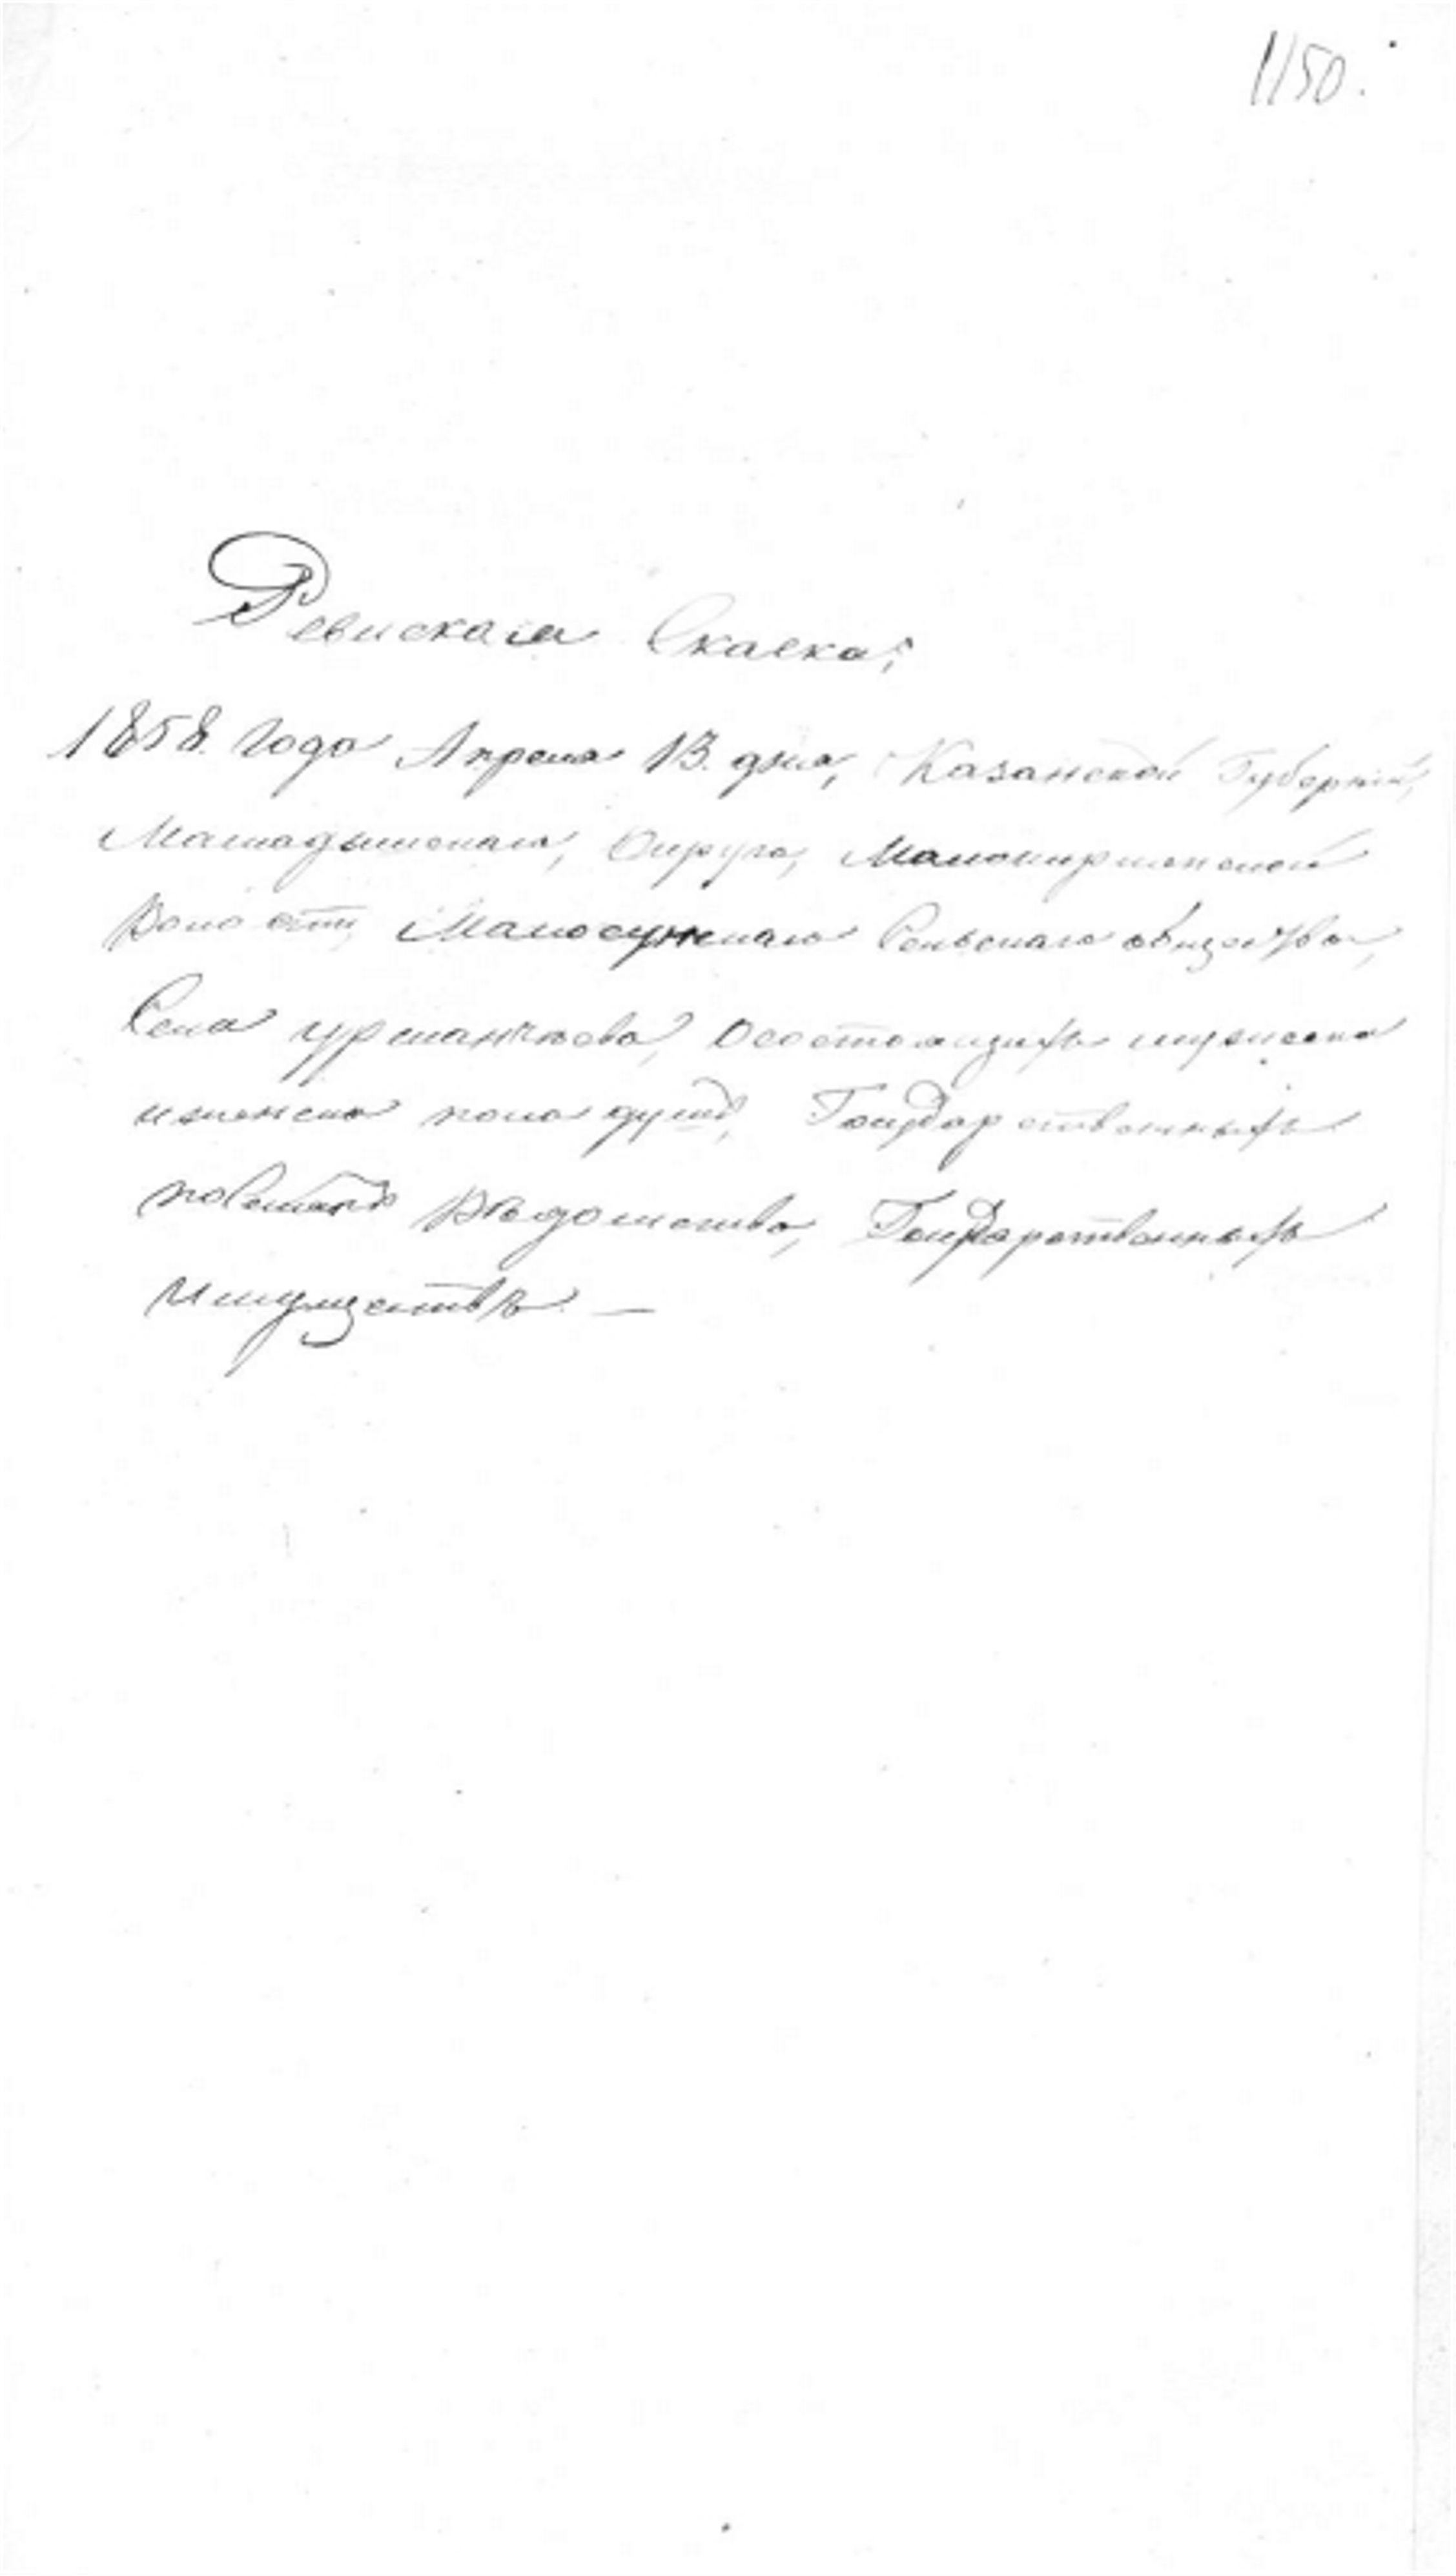 1150.
Ревиская Скаска;
1858. Года Апреля 13. дня, Казанской Губерніи,
Мамадышскаго, Округа, Малокирменской
Волости, Малосунскаго Сельскаго общества,
Села урманчѣева, Осостоящихъ мужеска
иженска пола душъ, Государственныхъ
Вѣдомства, Государственныхъ
Имуществъ —